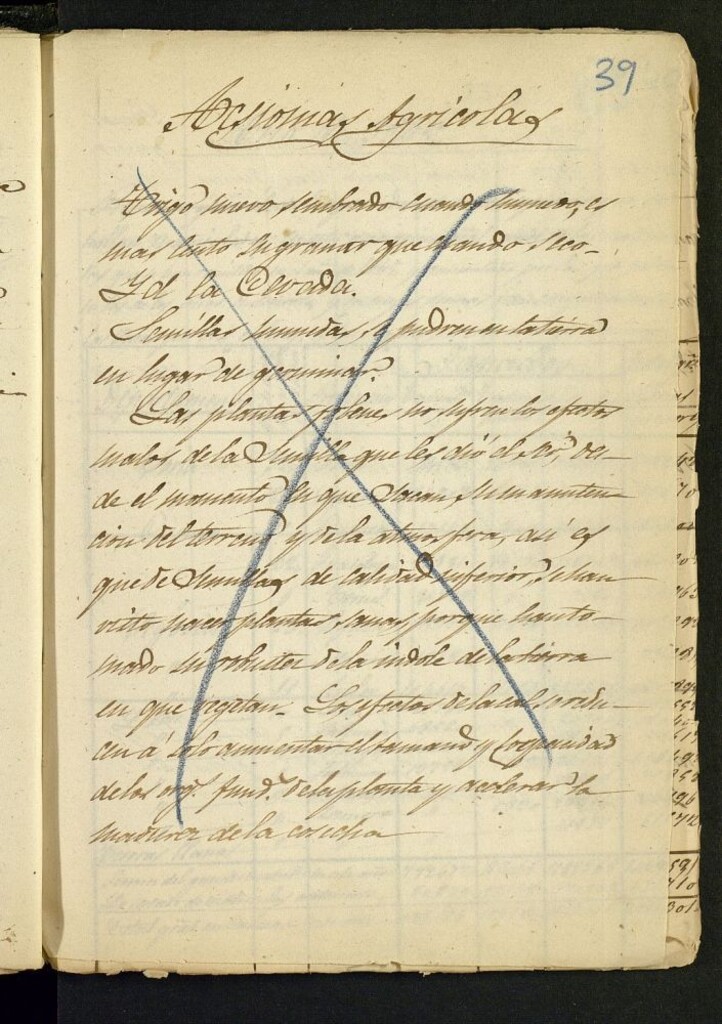 39
Acsiomas Agrícolas
Trigo nuevo sembrado cuando humedo, es
mas lento su granar que cuando seco-
Yd la Cevada.
Semillas humedas, se pudren en la tierra
en lugar de germinar.
Las plantas jobenes no sufren los efectos
malos de la Semilla que les dió el ser, des-
de el momento en que Sacan, su manuten-
cion del terreno y de la atmosfera, asi es
que de Semillas de calidad inferior, se han
visto nacer plantas, sanas, porque han to-
mado su robustez de la indole de la tierra
en que vegetan. Los efectos de la cal se redu-
cen á solo aumentar el tamaño y
de los org.s fund.s de la planta y acelerar la
madurez de la cosecha